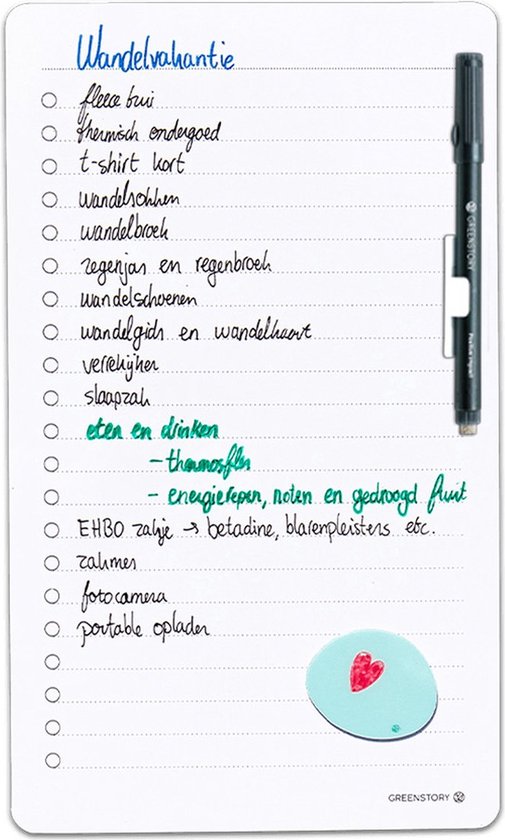 Wandelvakantie
fleece trui
thermisch ondergoed
t-shirt kort
wandelsokken
wandelbroek
regenjas en regenbroek
wandelschoenen
wandelgids en wandelkaart
verrekijker
slaapzak
eten en drinken
- thermosfles
- energierepen, noten en gedroogd fruit
EHBO zakje → betadine, blarenpleisters etc.
zakmes
fotocamera
portable oplader
GREENSTORY
GREENSTORY